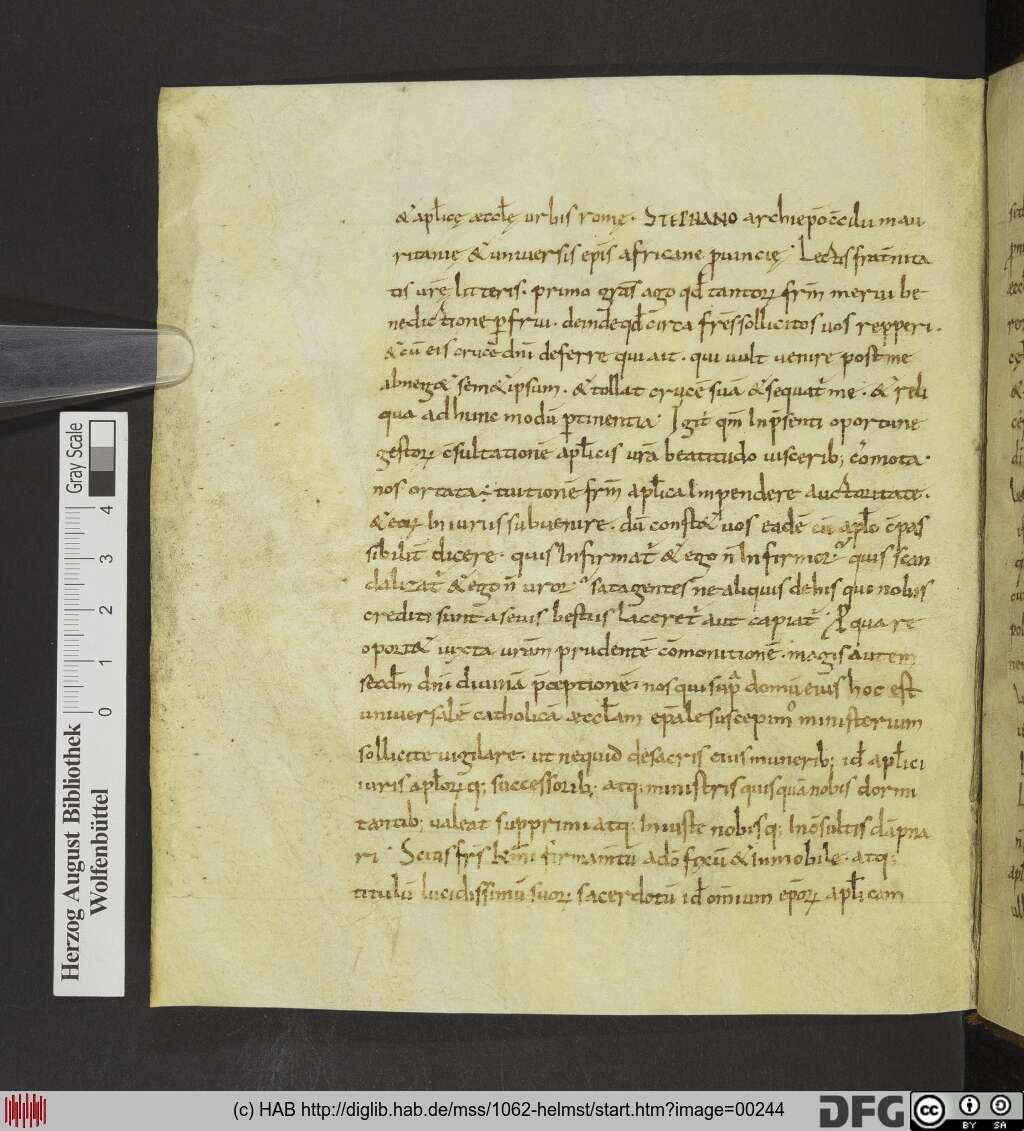 & aplicę æcclę urbis romę. STEPHANO archiepo ccilii mau
ritanię & uniuersis epis africane prouincię. Lectis fratnita
tis urę litteris. primo gras ago qđ tantorꝝ frm merui be
nedictione pfrui. deinde qđ circa fres sollicitos uos repperi.
& cū eis crucē dni deferre qui ait. qui uult uenire post me
abneg& sem&ipsum. & tollat crucē suā & sequat me. & reli
qua ad hunc modū ptinentia. Igit qm In psenti oportune
gestorꝝ csultationē aplicis ura beatitudo uiscerib; cōmota.
nos ortata ÷ tuitionē frm aplica Impendere auctoritate.
& eorꝝ Iniuriis subuenire. dū const& uos eadē cū aplo cpas
sibilit dicere. quis Infirmat & ego n Infirmor? quis scan
dalizat & ego n uror? satagentes ne aliquis de his qui nobis
crediti sunt a seuis bestiis laceret aut capiat. Qua re
oport& iuxta uram prudentē cōmonitionē. magis autem
secdm dni diuinā pceptionē. nos qui supra domū eius hoc est
uniuersalē catholicā æcclam epale suscepim ministerium
sollicite uigilare. ut ne quid de sacris eius munerib; id aplici
iuris aplorꝝq; successorib; atq; ministris quisquā nobis dormi
tantib; valeat supprimi atq; Iniuste nobisq; Incsultis dāpna
ri. Scitis frs kmi firmamtū a dō fixū & Inmobile. atq;
titulū lucidissimū suorꝝ sacerdotū id omium eporꝝ aplicam
Gray Scale
0 1 2 3 4
Herzog August Bibliothek
Wolfenbüttel
(c) HAB http://diglib.hab.de/mss/1062-helmst/start.htm?image=00244
DFG
cc BY SA